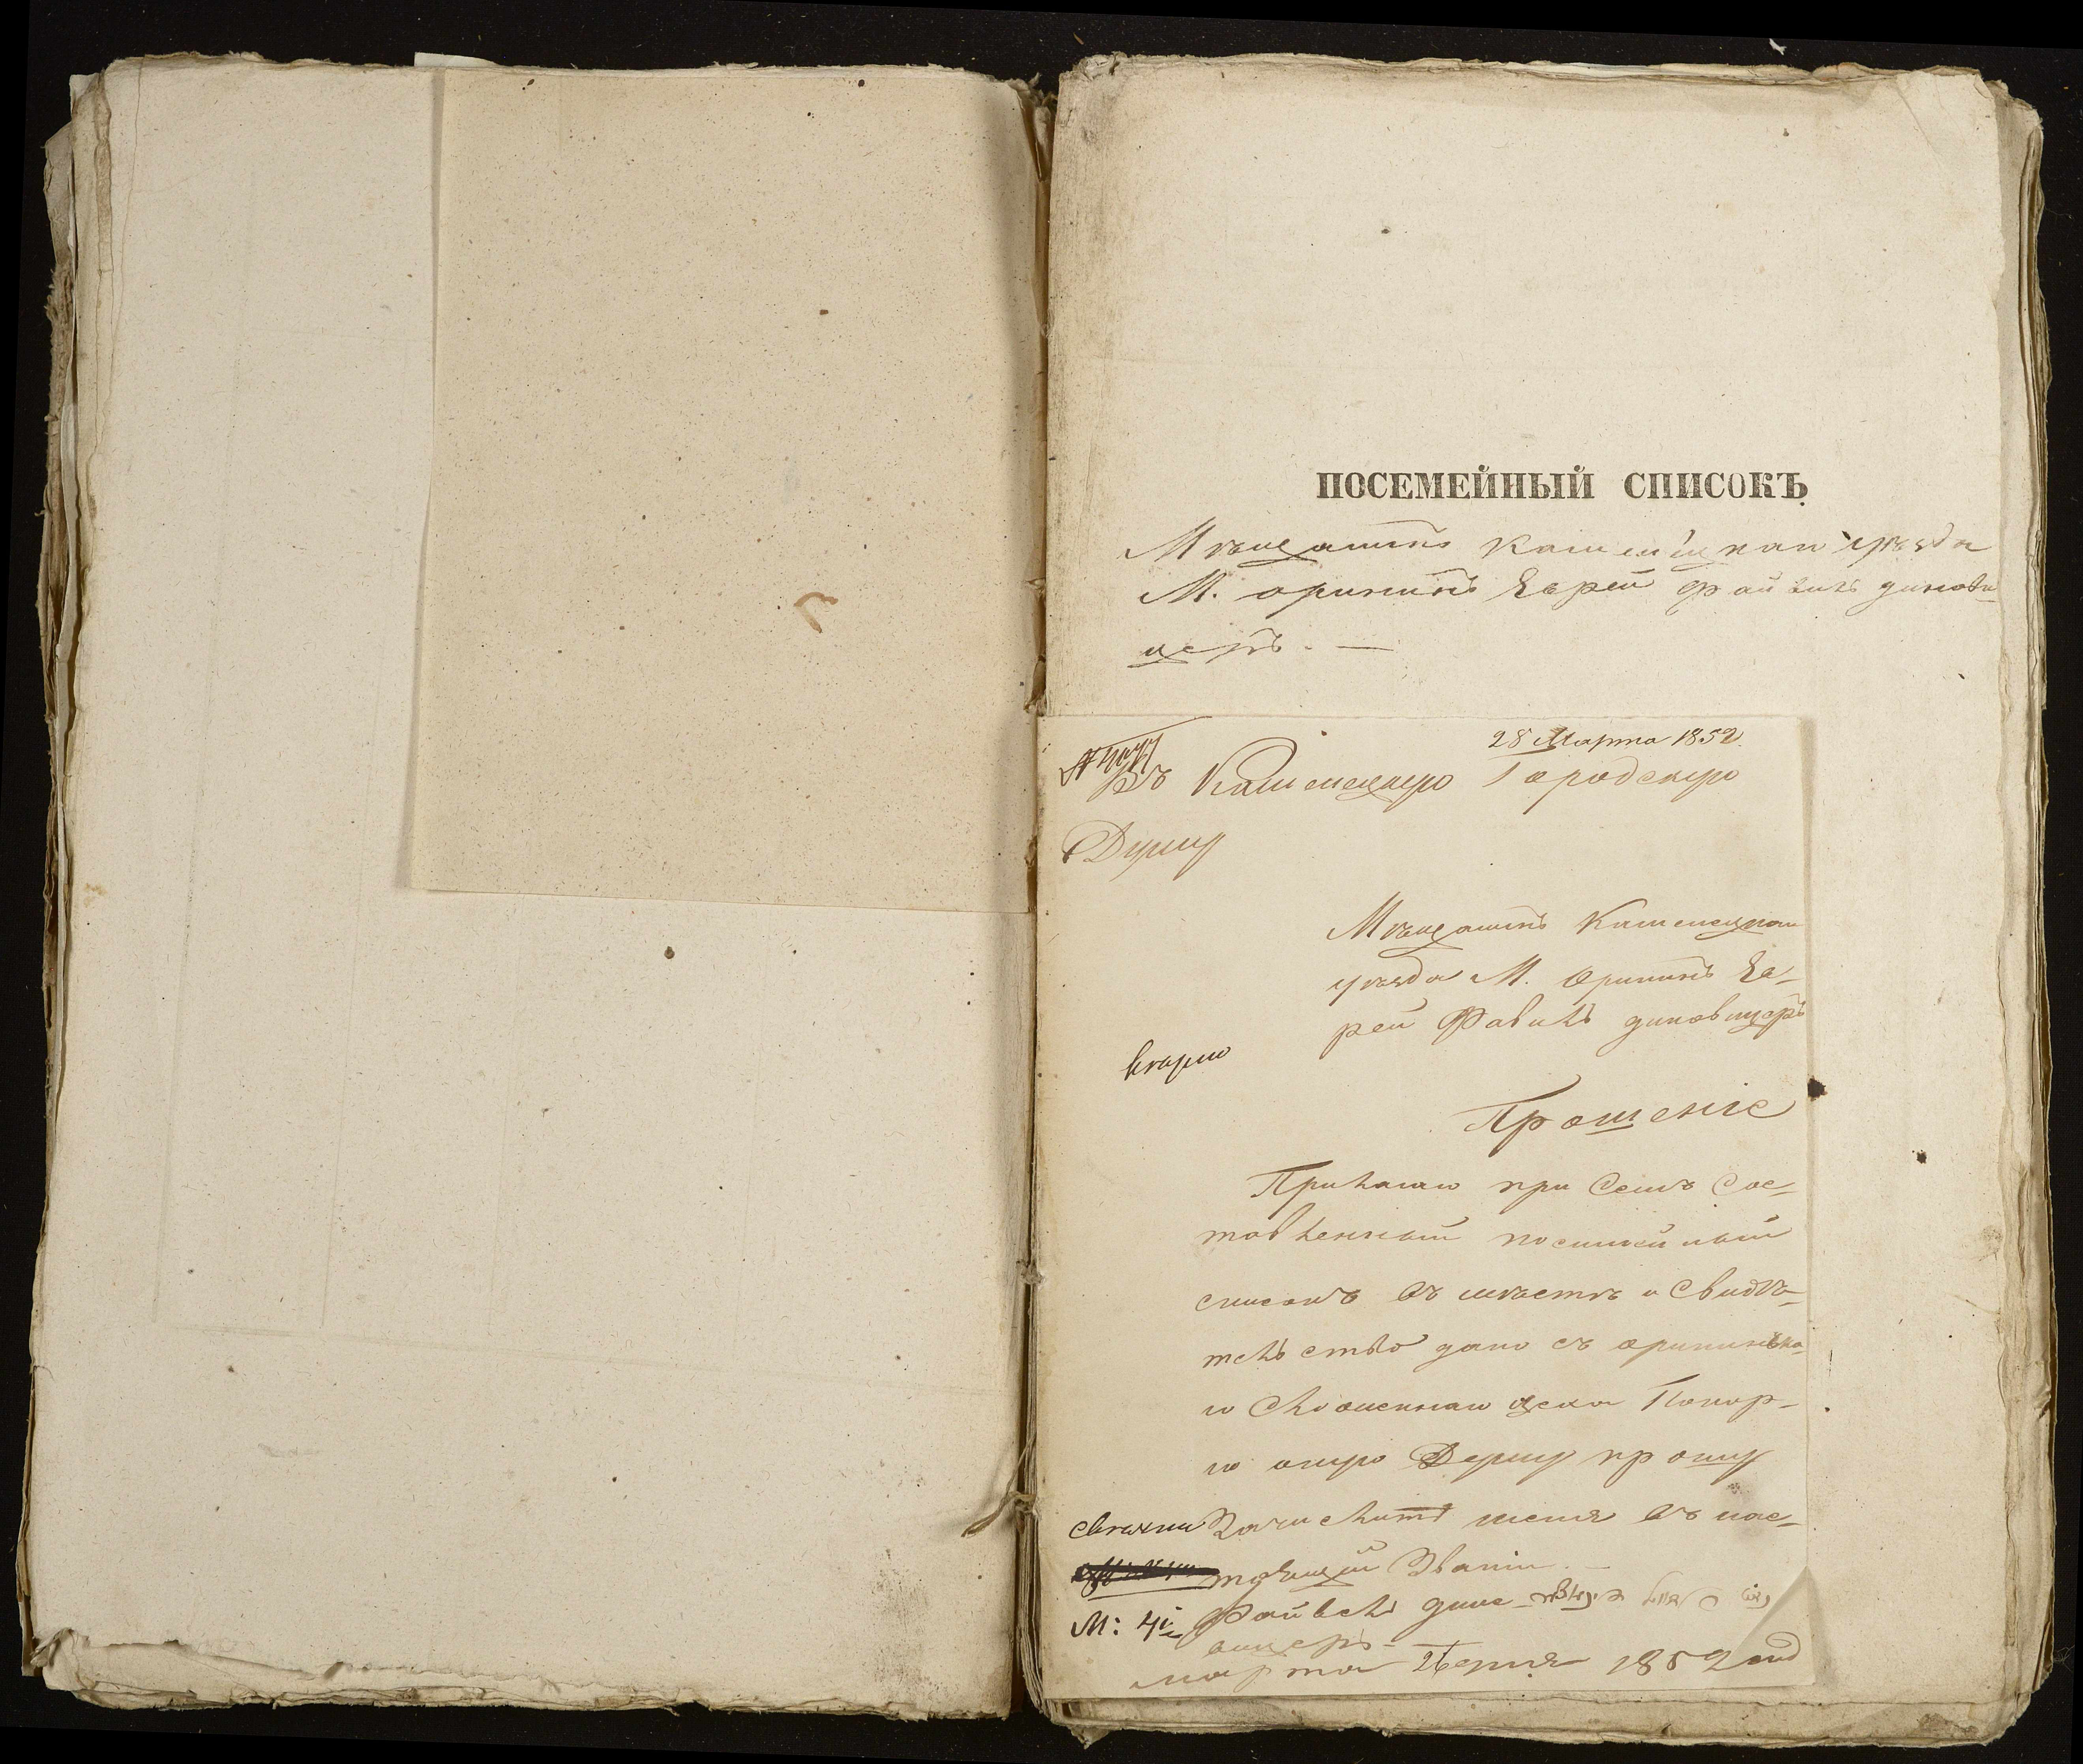 ПОСЕМЕЙНЫЙ СПИСОКЪ
Мѣщанинъ Каменецкаго уѣзда
М. орининъ Еврей Файвиль динови-
церъ. —
28 Марта 1852
Въ Каменецкую Городскую
Думу
Мѣщанинъ Каменецкаго
уѣзда М. Орининъ Ев-
рей Фавиль диновицеръ
Прошеніе
Прилагаю при Семъ Сос-
тавленный посимейный
списокъ въ мѣстѣ и Свидѣ-
тельство дано съ орининска-
го
го оную Думу прошу
Зачислить меня въ нас-
тоящій Званіи —
Файвель дино-
вицеръ -
марта 1852 год